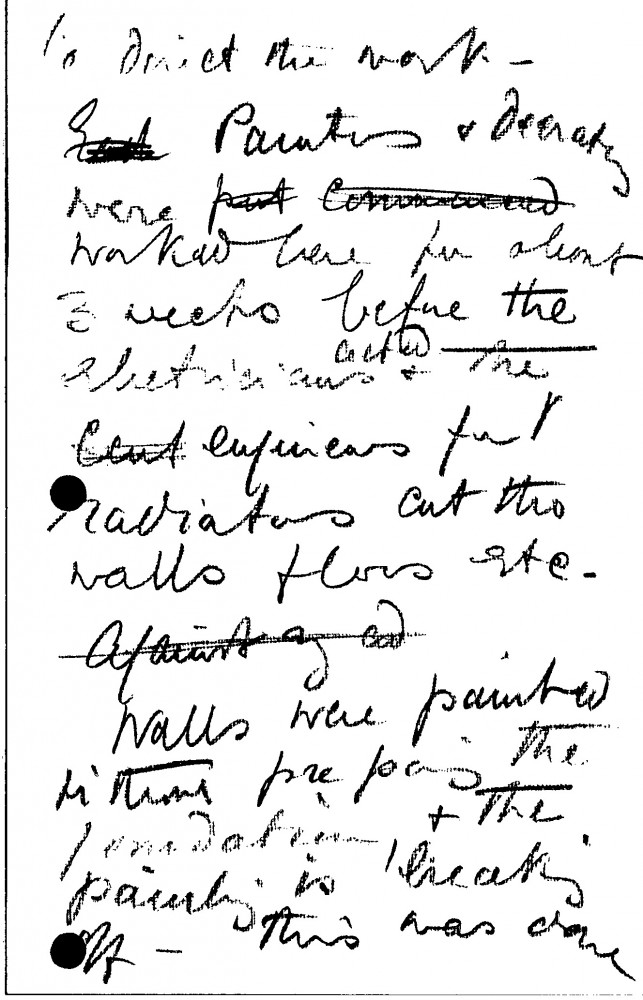 to direct the work -
Painters & decorating
were put commenced
worked here for about
3 weeks before the
acted
electricians & the
Cent engineers for
radiators cut thro
walls floors etc -
Against ag ed
Walls were painted
without preparing the
foundation & the
painting is breaking
off - this was done